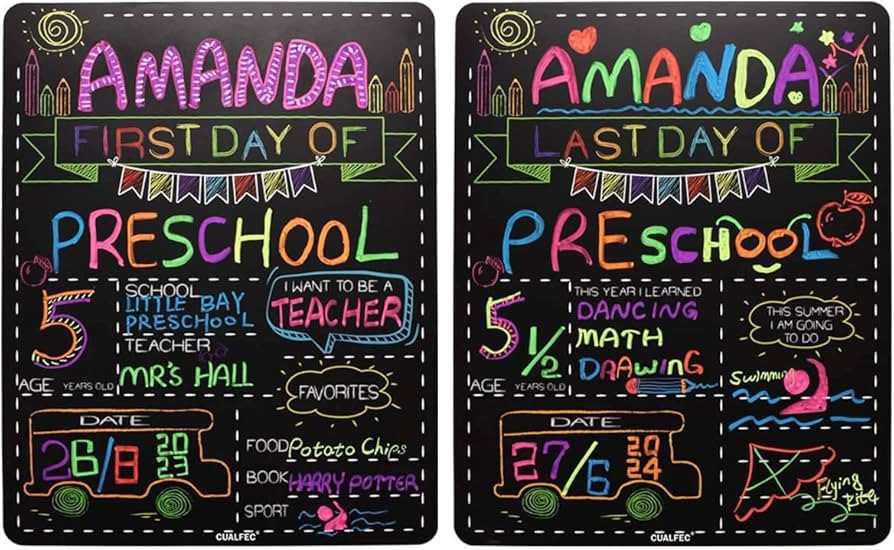 AMANDA
FIRST DAY OF
PRESCHOOL
5
AGE YEARS OLD
SCHOOL
LITTLE BAY
PRESCHOOL
TEACHER
MR'S HALL
I WANT TO BE A
TEACHER
FAVORITES
DATE
26/8 2023
FOOD Potato Chips
BOOK HARRY POTTER
SPORT
CUALFEC
AMANDA
LAST DAY OF
PRESCHOOL
5 1/2
AGE YEARS OLD
THIS YEAR I LEARNED
DANCING
MATH
DRAWING
THIS SUMMER
I AM GOING
TO DO
Swimming
DATE
27/6 2024
Flying
kite
CUALFEC